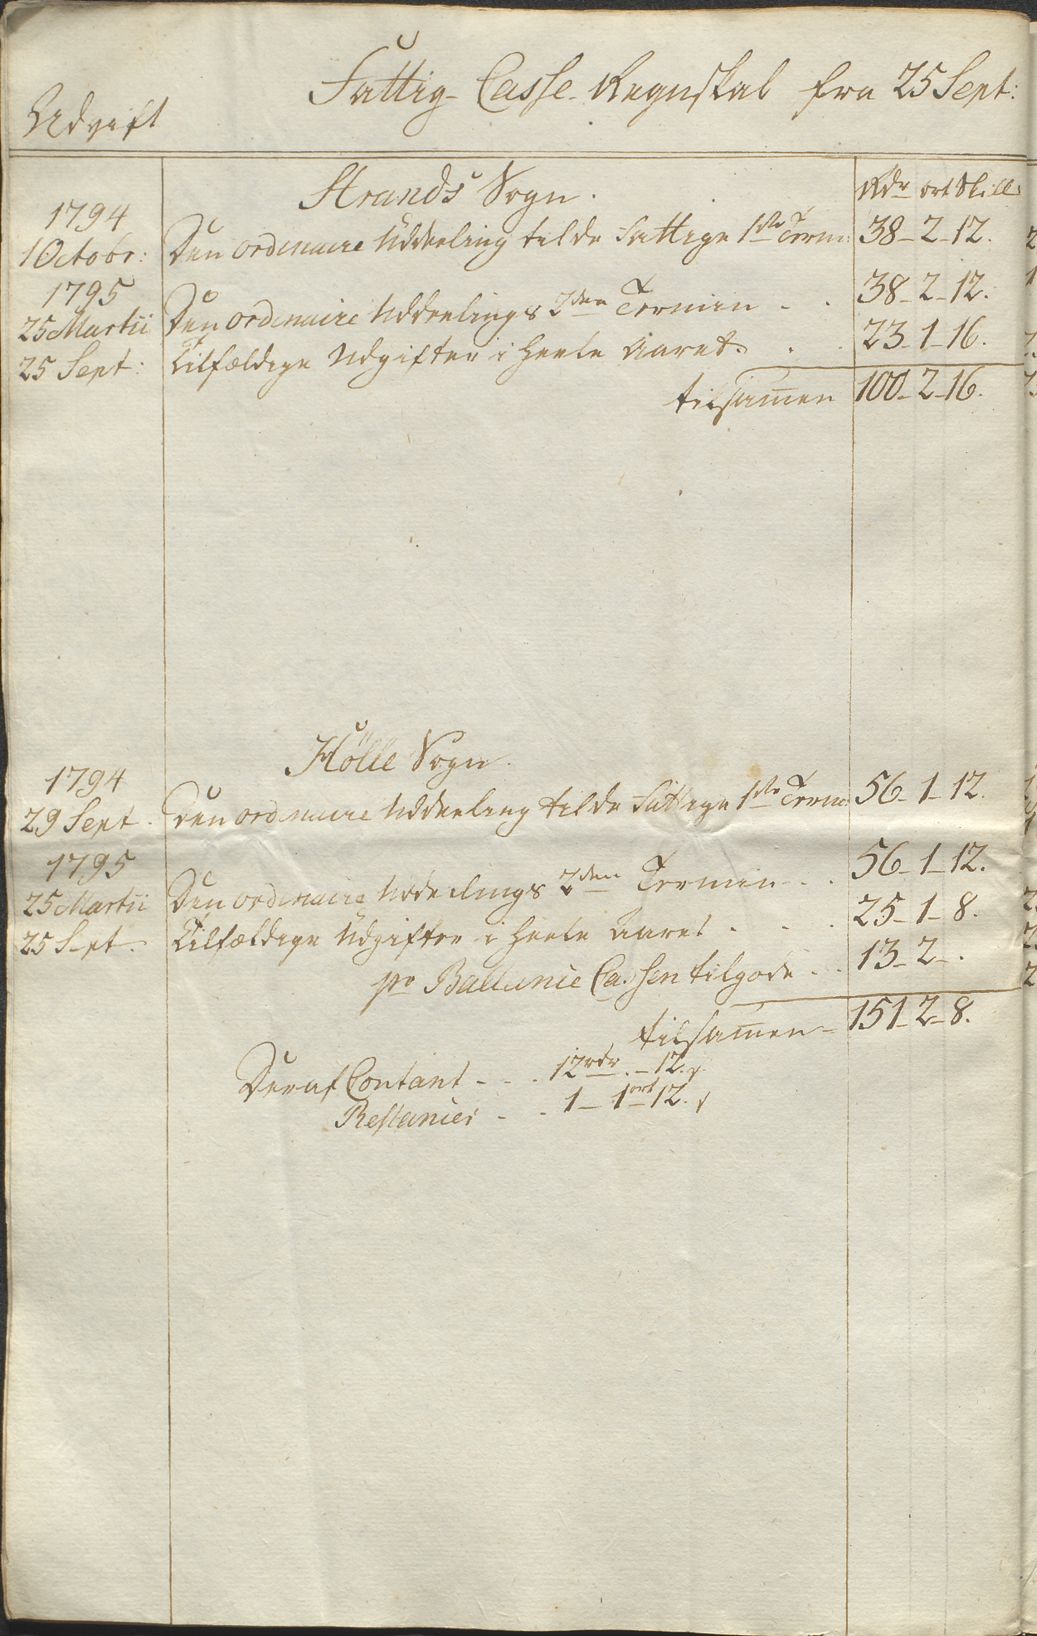 Udgift
Fattig-Casse-Regnskab fra 25 Sept:
Strands Sogn.
Rdr ort Skill:
1794
1 Octobr: Den ordinaire Uddeeling til de Fattige 1ste Term: 38-2-12.
1795
25 Martii Den ordinaire Uddeelings 2den Termin - . 38-2-12.
25 Sept: Tilfældige Udgifter i heele Aaret. . . 23-1-16.
tilsamen 100-2-16.
Hölle Sogn.
1794
29 Sept. Den ordinaire Uddeeling til de Fattige 1ste Term: 56-1-12.
1795
25 Martii Den ordinaire Uddeelings 2den Termin - . . 56-1-12.
25 Sept. Tilfældige Udgifter i heele Aaret . . . 25-1-8.
pr Ballance Cassen tilgode - . . 13-2-.
tilsamen - 151-2-8.
Deraf Contant - . . 12 rdr. - 12.
Restancer - . 1 - 1 ort 12.